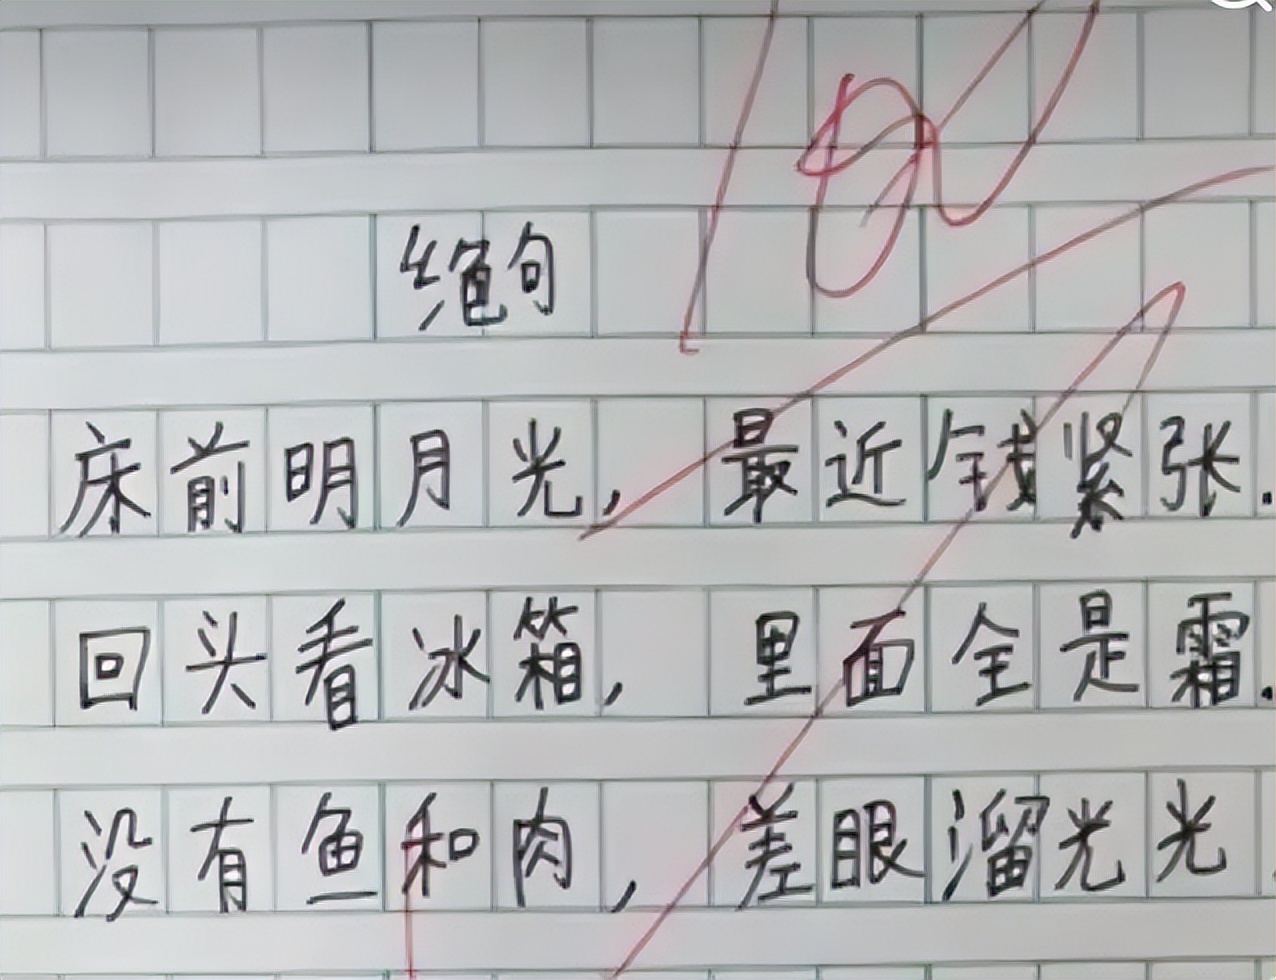 100
绝句
床前明月光, 最近钱紧张.
回头看冰箱, 里面全是霜.
没有鱼和肉, 差眼溜光光.